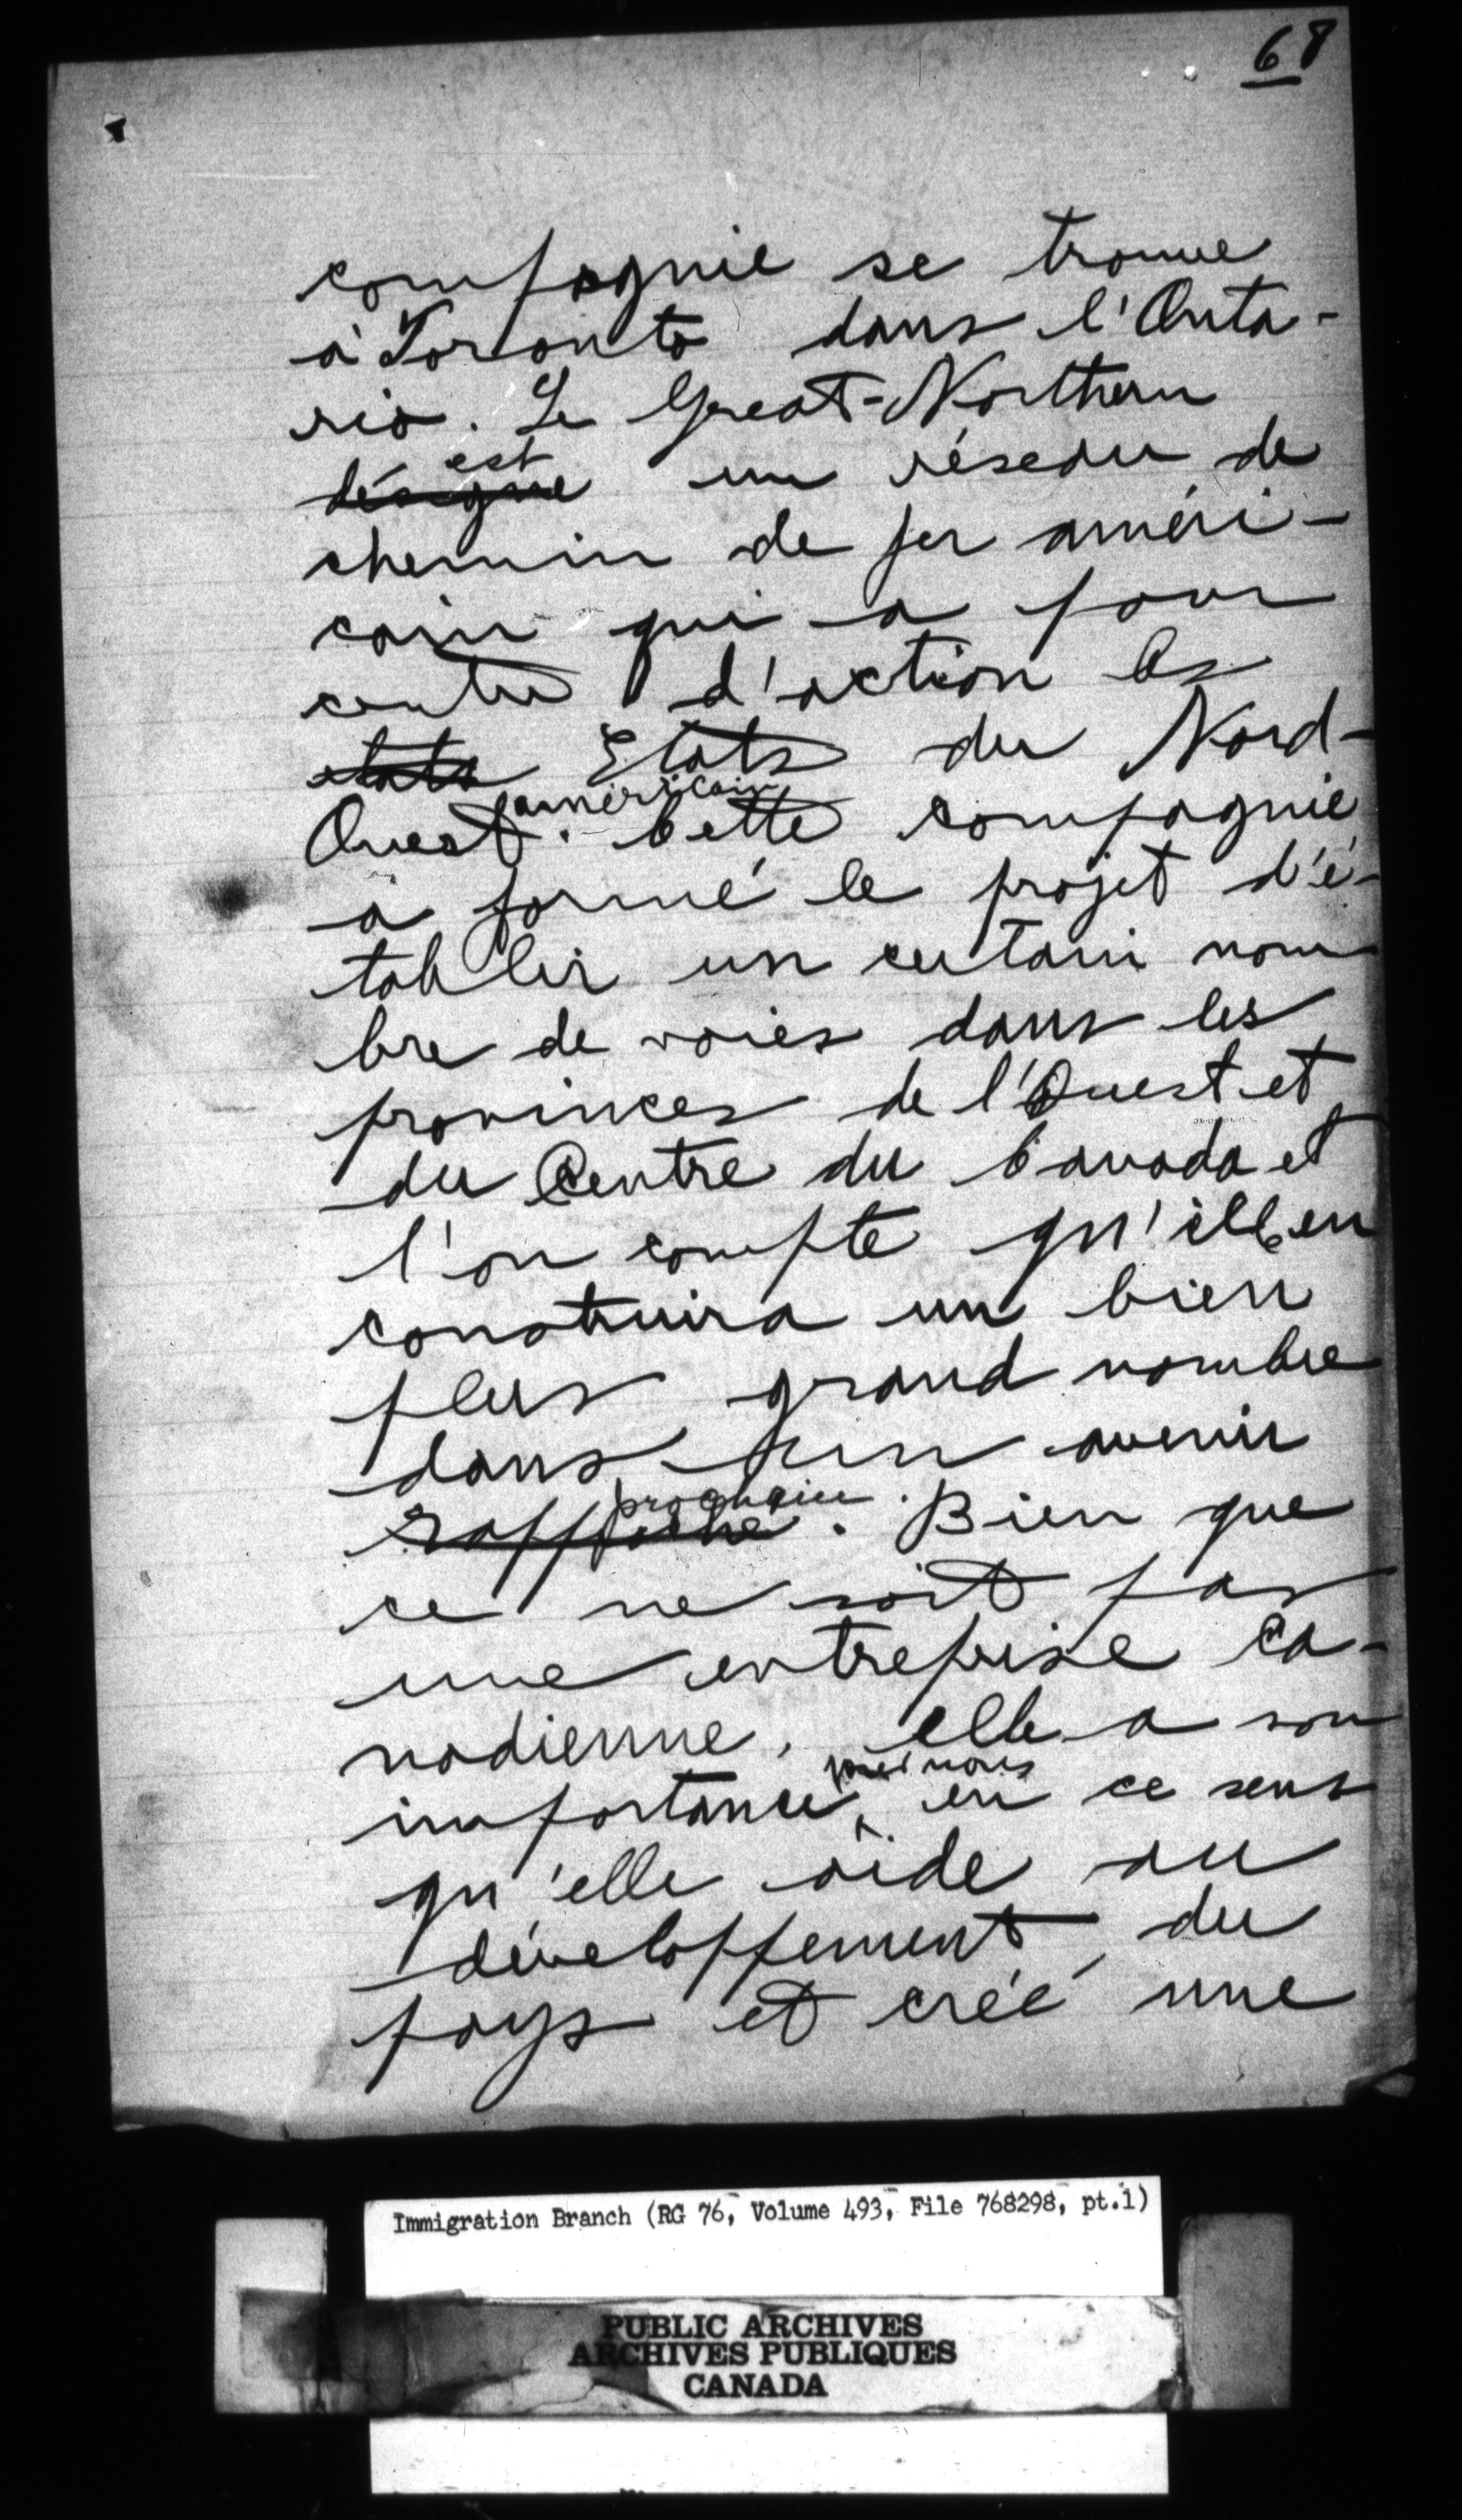 68
compagnie se trouve
à Toronto dans l'Onta-
rio. Le Great-Northern
est
désigne un réseau de
chemin de fer améri-
cain qui a pour
centre d'action les
etats Etats du Nord-
américain
Ouest. Cette compagnie
a formé le projet d'é-
tablir un certain nom
bre de voies dans les
provinces de l'Ouest et
du Centre du Canada et
l'on compte qu'ill en
construira un bien
plus grand nombre
dans un avenir
prochain.
rapproché. Bien que
ce ne soit pas
une entreprise ca-
nadienne, elle a son
nous
importance, en ce sens
qu'elle aide au
développement du
pays et créé une
Immigration Branch (RG 76, Volume 493, File 768298, pt.1)
PUBLIC ARCHIVES
ARCHIVES PUBLIQUES
CANADA